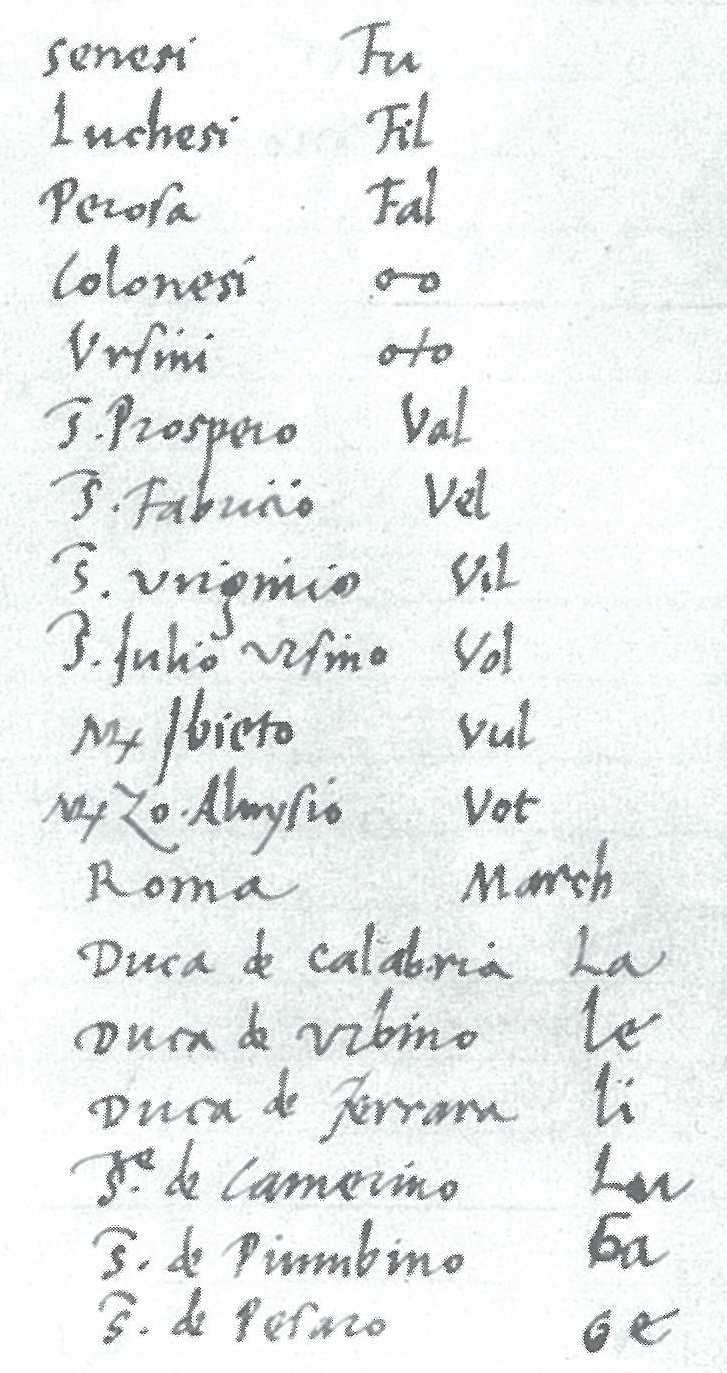 Senesi Fu
Luchesi Fil
Perosa Fal
Colonesi o-o
Ursini o+o
S. Prospero Val
S. Fabricio Vel
S. Virginio Vil
S. Julio Ursino Vol
Obieto Vul
Zo. Aluysio Vot
Roma March
Duca de Calabria La
Duca de Urbino Le
Duca de Ferrara li
S.re de Camerino Lu
S. de Piumbino Ga
S. de Pesaro Ge